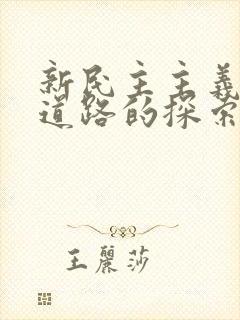 新民主主義
道路的探索
王麗莎